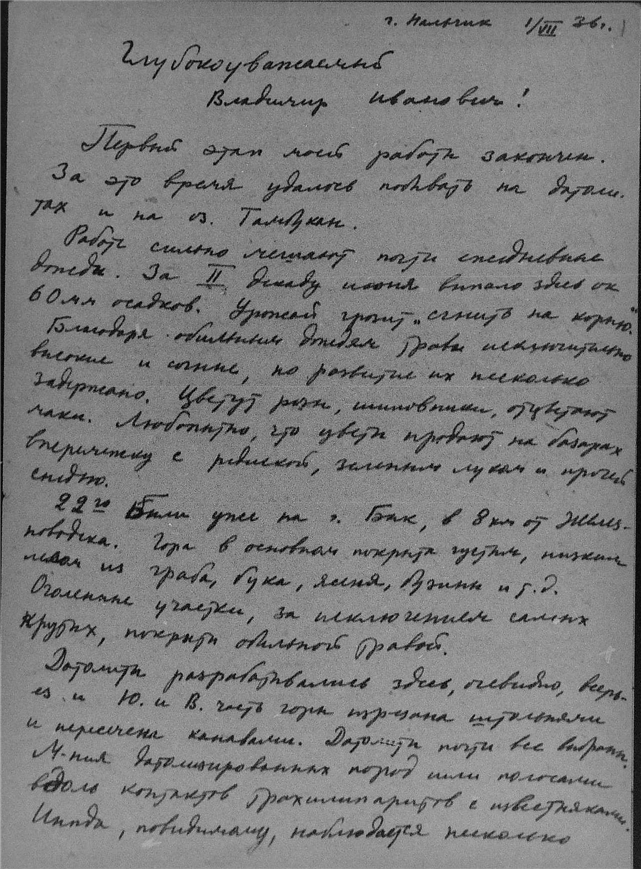 г. Нальчик 1/VII 36г.
Глубокоуважаемый
Владимир Иванович!
Первый этап моей работы закончен.
За это время удалось побывать на датоли-
тах и на оз. Тамбукан.
Работе сильно мешают почти ежедневные
дожди. За II декаду июня выпало здесь ок
60 мм осадков. Урожай грозит „сгнить на корню".
Благодаря обильным дождям травы исключительно
высокие и сочные, но развитие их несколько
задержано. Цветут розы, шиповники, отцветают
маки. Любопытно, что цветы продают на базарах
вперемежку с редиской, зеленым луком и прочей
снедью.
22го были уже на г. Бык, в 8 км от Желез-
новодска. Гора в основном покрыта густым, низким
лесом из граба, бука, ясеня, бузины и т.д.
Оголенные участки, за исключением самых
крутых, покрыты обильной травой.
Датолиты разрабатывались здесь, очевидно, всерь-
ез и Ю. и В. часть горы изрезана штольнями
и пересечена канавами. Датолиты почти все выбраны.
М-ния датолизированных пород шли полосами
вдоль контактов трахилипаритов с известняками.
Иногда, повидимому, наблюдается несколько